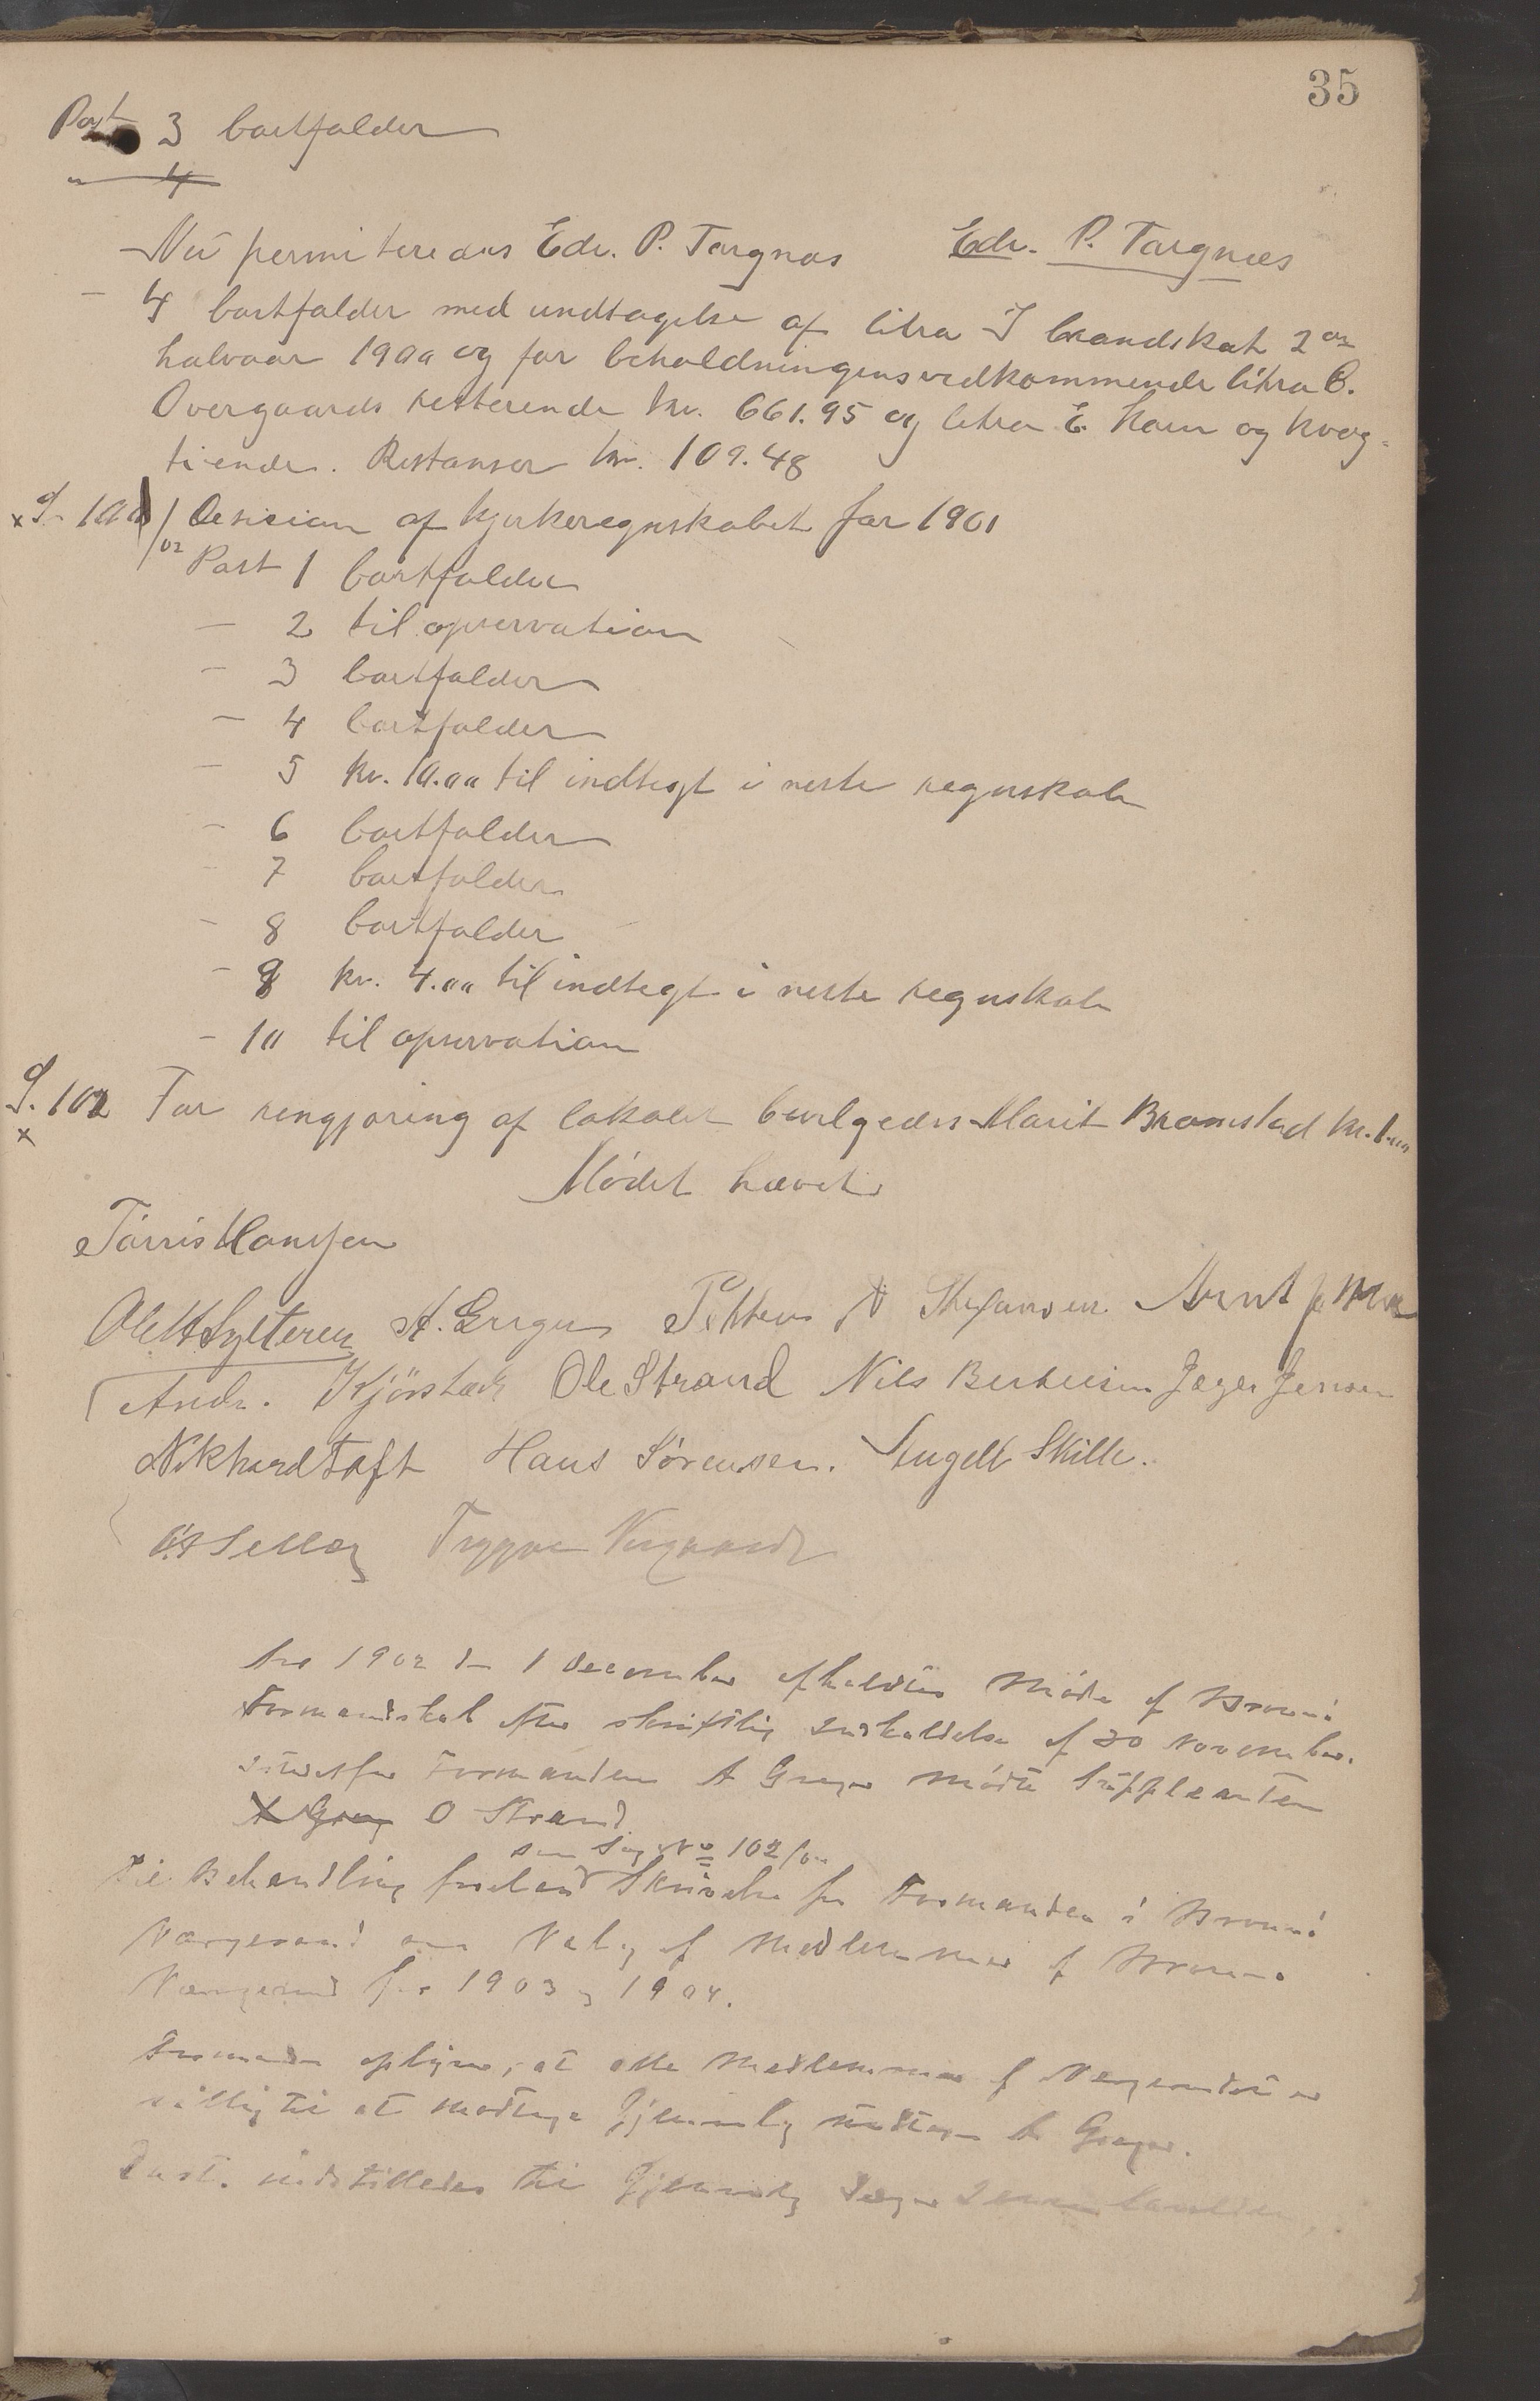 35
Post 3 bortfalder
" 4
Nu permiteredes Edv. P. Torgnæs Edv. P. Torgnæs
- 4 bortfalder med undtagelse af litra I brandskat 2den
halvaar 1900 og for beholdningens vedkommende litra C.
Overgaards resterende kr. 661.95 og litra E. Korn og kvæg-
tiende. Restanser kr. 109.48
S. 101/02 Desision af kjerkeregnskabet for 1901
Post 1 bortfalder
- 2 til opservation
- 3 bortfalder
- 4 bortfalder
- 5 kr. 10.00 til indtegt i neste regnskab
- 6 bortfalder
- 7 bortfalder
- 8 bortfalder
- 9 kr. 4.00 til indtegt i neste regnskab
- 10 til opservation
S. 102 For rengjøring af lokalet bevlgedes Marit Bromstad kr. 1.00
Mødet hævet
Tørris Hansen
Ole H Sylteren A. Greger Petter N Stefansen Arnt
Andr. Kjørstad Ole Strand Nils Berteusen Jæger Jensen
Nikhard Toft Hans Sørensen. Engelt Skille.
Trygve Norgaard
Aar 1902 den 1 December afholdtes Møde af Brønnø
Formandskab efter skriftlig Indkaldelse af 20 November.
Istedetfor Formanden A Greger mødte Suppleanten
A Greg O Strand
som Sag No 102/02
Til Behandling forelaa Skrivelse fra Formanden i Brønnø
Værgeraad om Valg af Medlemmer af Brønnø
Værgeraad for 1903 og 1904.
Formanden oplyser, at alle Medlemmer af Værgeraadet er
villig til at modtage Gjenvalg undtagen A Greger.
Enst. indstilledes til Gjenvalg Jæger Jensen